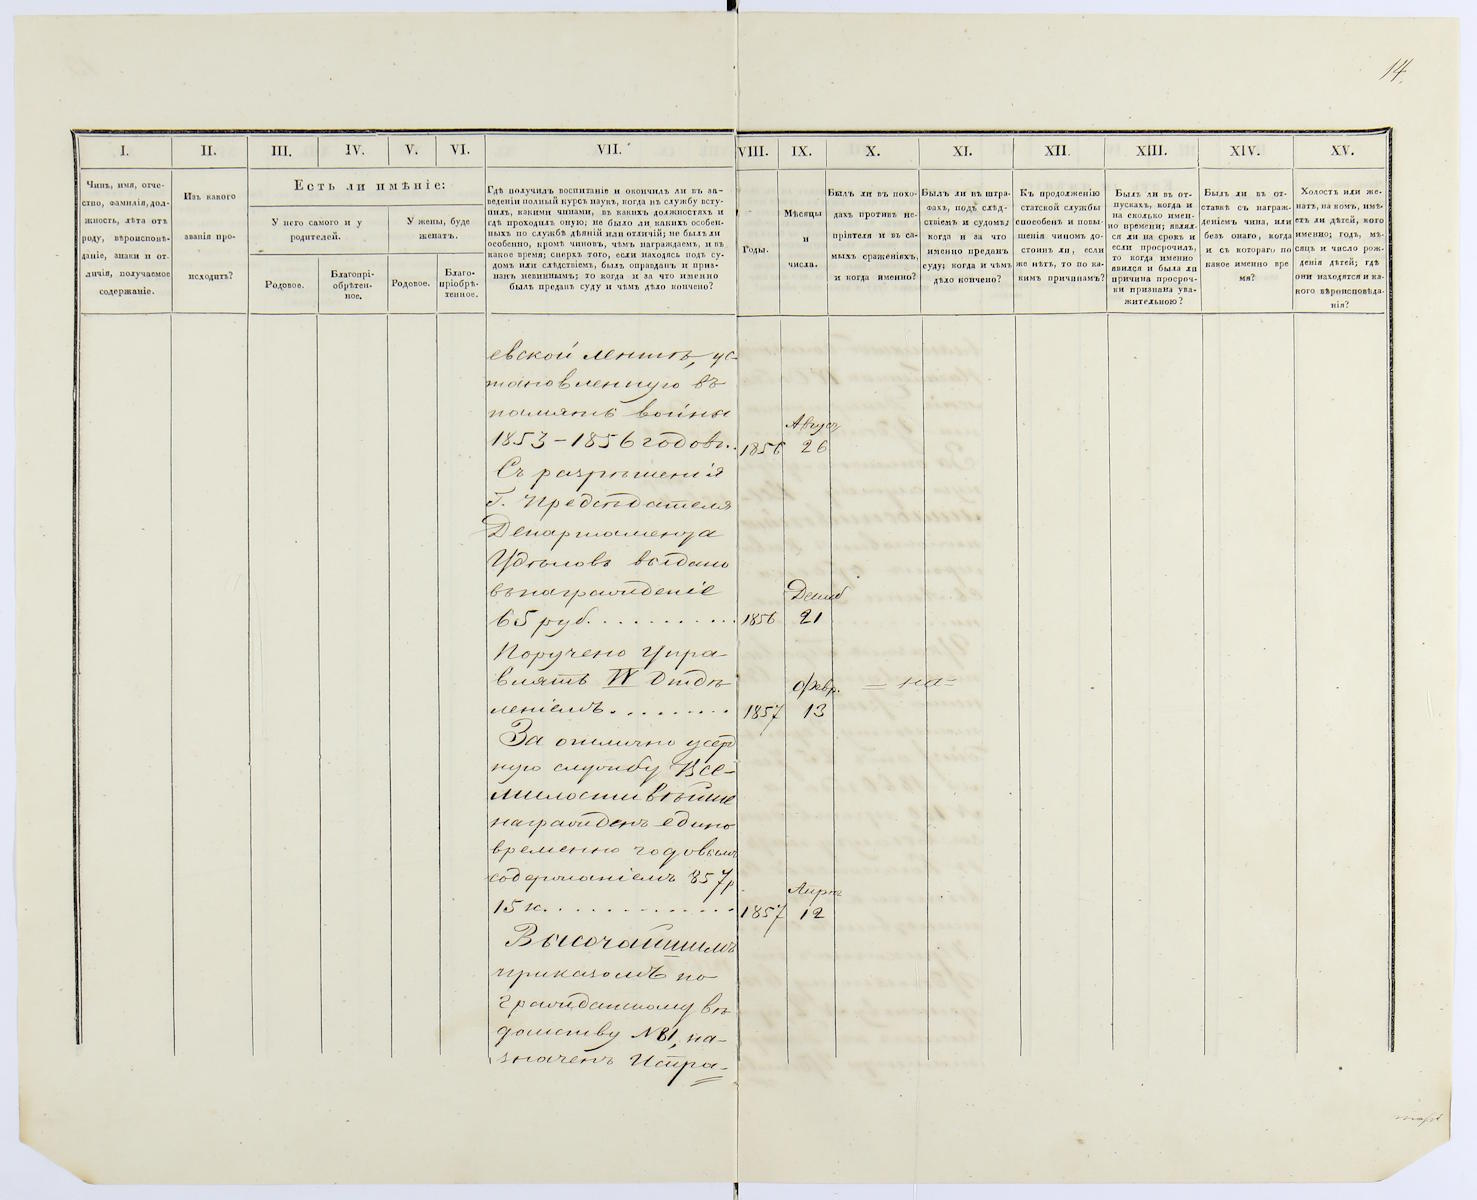 14.
I.
II.
III.
IV.
V.
VI.
VII.
VIII.
IX.
X.
XI.
XII.
XIII.
XIV.
XV.
Чинъ, имя, отче-
ство, фамилія, дол-
жность, лѣта отъ
роду, вѣроисповѣ-
даніе, знаки и от-
личія, получаемое
содержаніе.
Изъ какого
званія про-
исходитъ?
Есть ли имѣніе:
У него самого и у
родителей.
У жены, буде
женатъ.
Родовое.
Благопрі-
обрѣтен-
ное.
Родовое.
Благо-
пріобрѣ-
тенное.
Гдѣ получилъ воспитаніе и окончилъ ли въ за-
веденіи полный курсъ наукъ, когда въ службу всту-
пилъ, какими чинами, въ какихъ должностяхъ и
гдѣ проходилъ оную; не было ли какихъ особен-
ныхъ по службѣ дѣяній или отличій; не былъ ли
особенно, кромѣ чиновъ, чѣмъ награждаемъ, и въ
какое время; сверхъ того, если находясь подъ су-
домъ или слѣдствіемъ, былъ оправданъ и приз-
нанъ невиннымъ; то когда и за что именно
былъ преданъ суду и чѣмъ дѣло кончено?
Годы.
Мѣсяцы
и
числа.
Былъ ли въ похо-
дахъ противъ не-
пріятеля и въ са-
мыхъ сраженіяхъ,
и когда именно?
Былъ ли въ штра-
фахъ, подъ слѣд-
ствіемъ и судомъ;
когда и за что
именно преданъ
суду; когда и чѣмъ
дѣло кончено?
Къ продолженію
статской службы
способенъ и повы-
шенія чиномъ до-
стоинъ ли, если
же нѣтъ, то по ка-
кимъ причинамъ?
Былъ ли въ от-
пускахъ, когда и
на сколько имен-
но времени; являл-
ся ли на срокъ и
если просрочилъ,
то когда именно
явился и была ли
причина просроч-
ки признана ува-
жительною?
Былъ ли въ от-
ставкѣ съ награж-
деніемъ чина, или
безъ онаго, когда
и съ котораго по
какое именно вре
мя?
Холостъ или же-
натъ, на комъ, имѣ-
етъ ли дѣтей, кого
именно; годъ, мѣ-
сяцъ и число рож-
денія дѣтей; гдѣ
они находятся и ка-
кого вѣроисповѣда-
нія?
евской лентѣ, ус-
тановленную въ
память войны
1853-1856 годовъ. 1856 Август 26
Съ разрѣшенія
Г. Предсѣдателя
Департамента
Удѣловъ выдано
въ награжденіе
65 руб. . . . . . . . . . . 1856 Декаб 21
Поручено Упра-
влять IV Отдѣ
леніемъ. . . . . . . . . 1857 Февр. 13
За отлично усерд
ную службу Все-
милостивѣйше
награжденъ едино
временно годовымъ
содержаніемъ 857 р
15 к. . . . . . . . . . . . . 1857 12
Высочайшимъ
приказомъ по
гражданскому вѣ
домству № 81, на-
значенъ Испра-